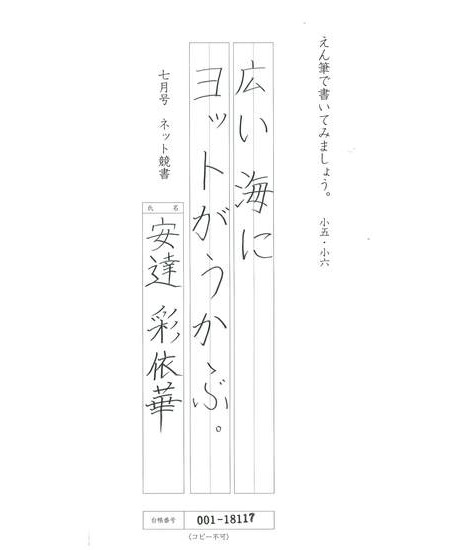 えん筆で書いてみましょう。 小五・小六
広い海に
ヨットがうかぶ。
七月号 ネット競書
氏名
安達 彩依華
台帳番号 001-18117
(コピー不可)